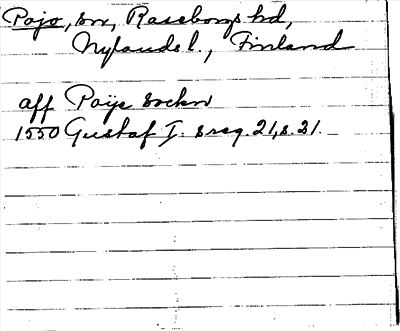 Pojo, sn, Raseborgs hd,
Nylands l., Finland
aff Poije sockn
1550 Gustaf I. s reg. 21, s. 31.